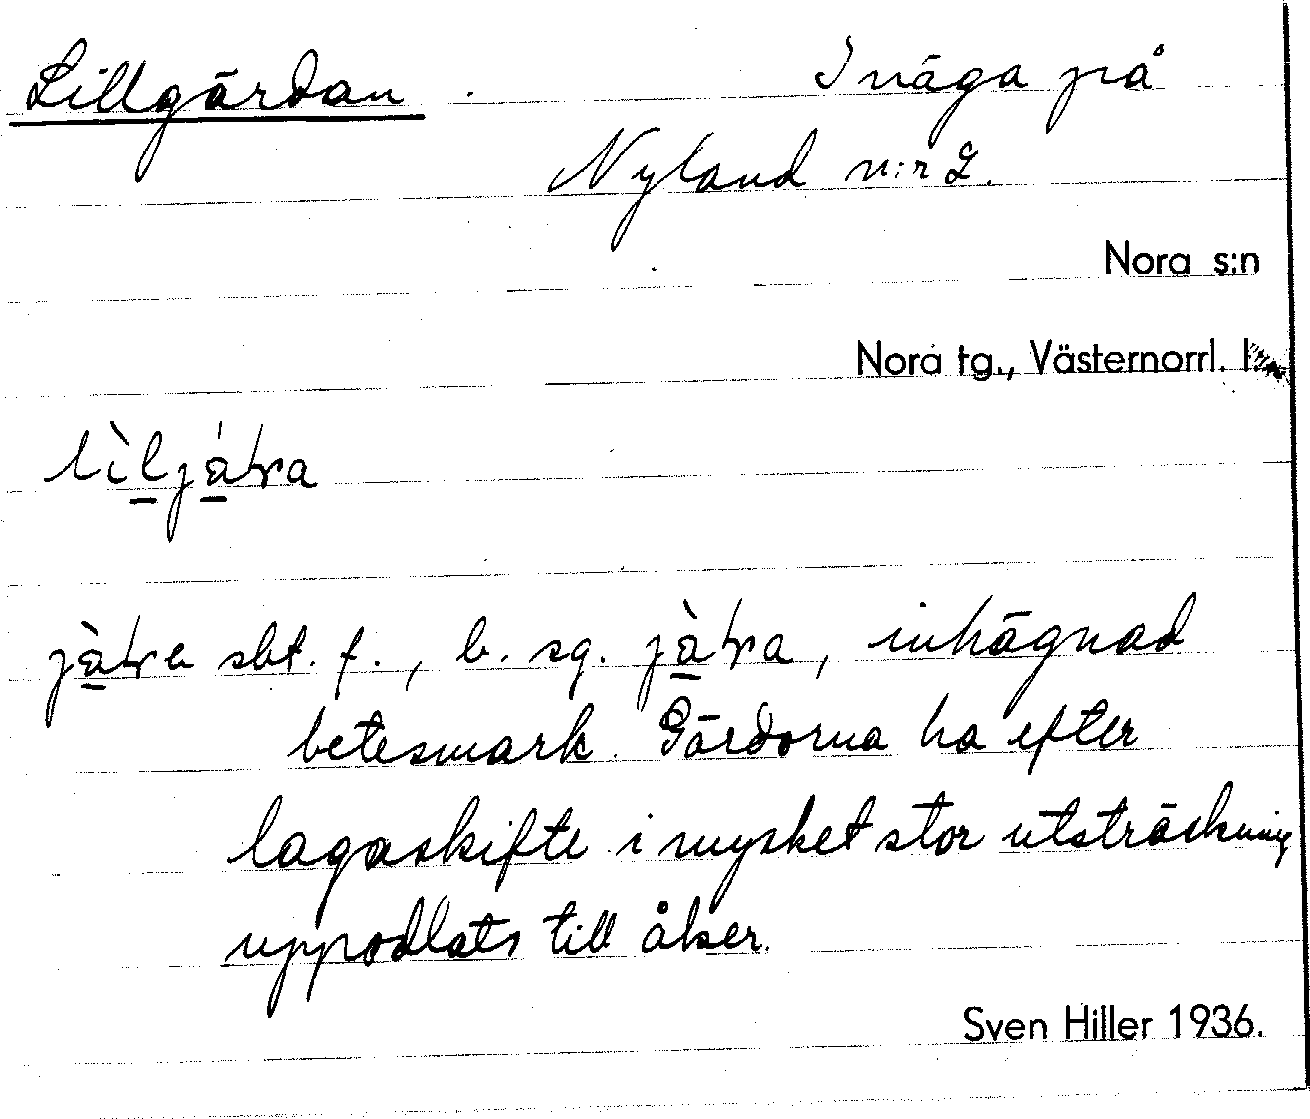 Lillgärdan. Inäga på
Nyland n:r 2.
Nora s:n
Nora tg., Västernorrl. l
sbt. f., b. sg. inhägnad
betesmark. Gärdorna ha efter
lagaskifte i mycket stor utsträckning
uppodlats till åker.
Sven Hiller 1936.